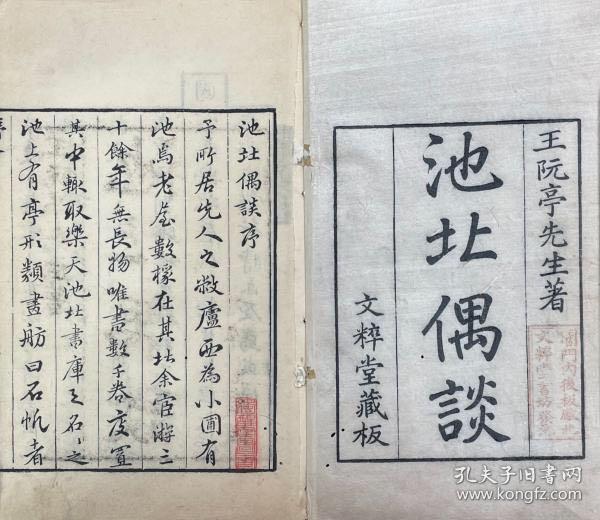 王阮亭先生著
池北偶談
文粹堂藏板
池北偶談序
予所居先人之敝廬西為小圃有
池焉老屋數椽在其北余宦游三
十餘年無長物唯書數千卷庋置
其中輒取樂天池北書庫之名名之
池上有亭形類畫舫曰石帆者
孔夫子旧书网
www.kongfz.com